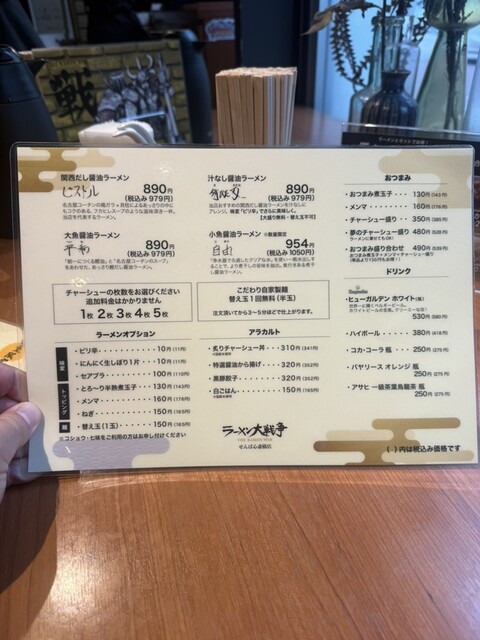 戦
関西だし醤油ラーメン
ピストル 890円
(税込み 979円)
大魚醤油ラーメン
平和 890円
(税込み 979円)
汁なし醤油ラーメン
890円
(税込み 979円)
【大盛り無料・替え玉不可】
小魚醤油ラーメン ※数量限定
自由 954円
(税込み 1050円)
チャーシューの枚数をお選びください
追加料金はかかりません
1枚 2枚 3枚 4枚 5枚
こだわり自家製麺
替え玉 1回無料 (半玉)
注文頂いてから3〜5分ほどで仕上がります。
ラーメンオプション
味変
・ピリ辛 10円 (11円)
・にんにく生しぼり1片 10円 (11円)
・セアブラ 100円 (110円)
トッピング
・とろ〜り半熟煮玉子 130円 (143円)
・メンマ 160円 (176円)
・ねぎ 150円 (165円)
麺
・替え玉 (1玉) 150円 (165円)
※コショウ・七味をご利用の方はお申し付けください
アラカルト
・炙りチャーシュー丼 310円 (341円)
・特選醤油から揚げ 320円 (352円)
・黒豚餃子 320円 (352円)
・白ごはん 150円 (165円)
ラーメン大戦争
THE RAMEN WAR
せんば心斎橋店
おつまみ
・おつまみ煮玉子 130円 (143円)
・メンマ 160円 (176円)
・チャーシュー盛り 350円 (385円)
・夢のチャーシュー盛り 480円 (528円)
・おつまみ盛り合わせ 490円 (539円)
おつまみ煮玉子+メンマ+チャーシュー盛り
ドリンク
・ヒューガルデン ホワイト (瓶)
世界一に輝くベルギービール。
530円 (583円)
・ハイボール 380円 (418円)
・コカ・コーラ 瓶 250円 (275円)
・バヤリース オレンジ 瓶
250円 (275円)
・アサヒ 一級茶葉烏龍茶 瓶
250円 (275円)
( ) 内は税込み価格です